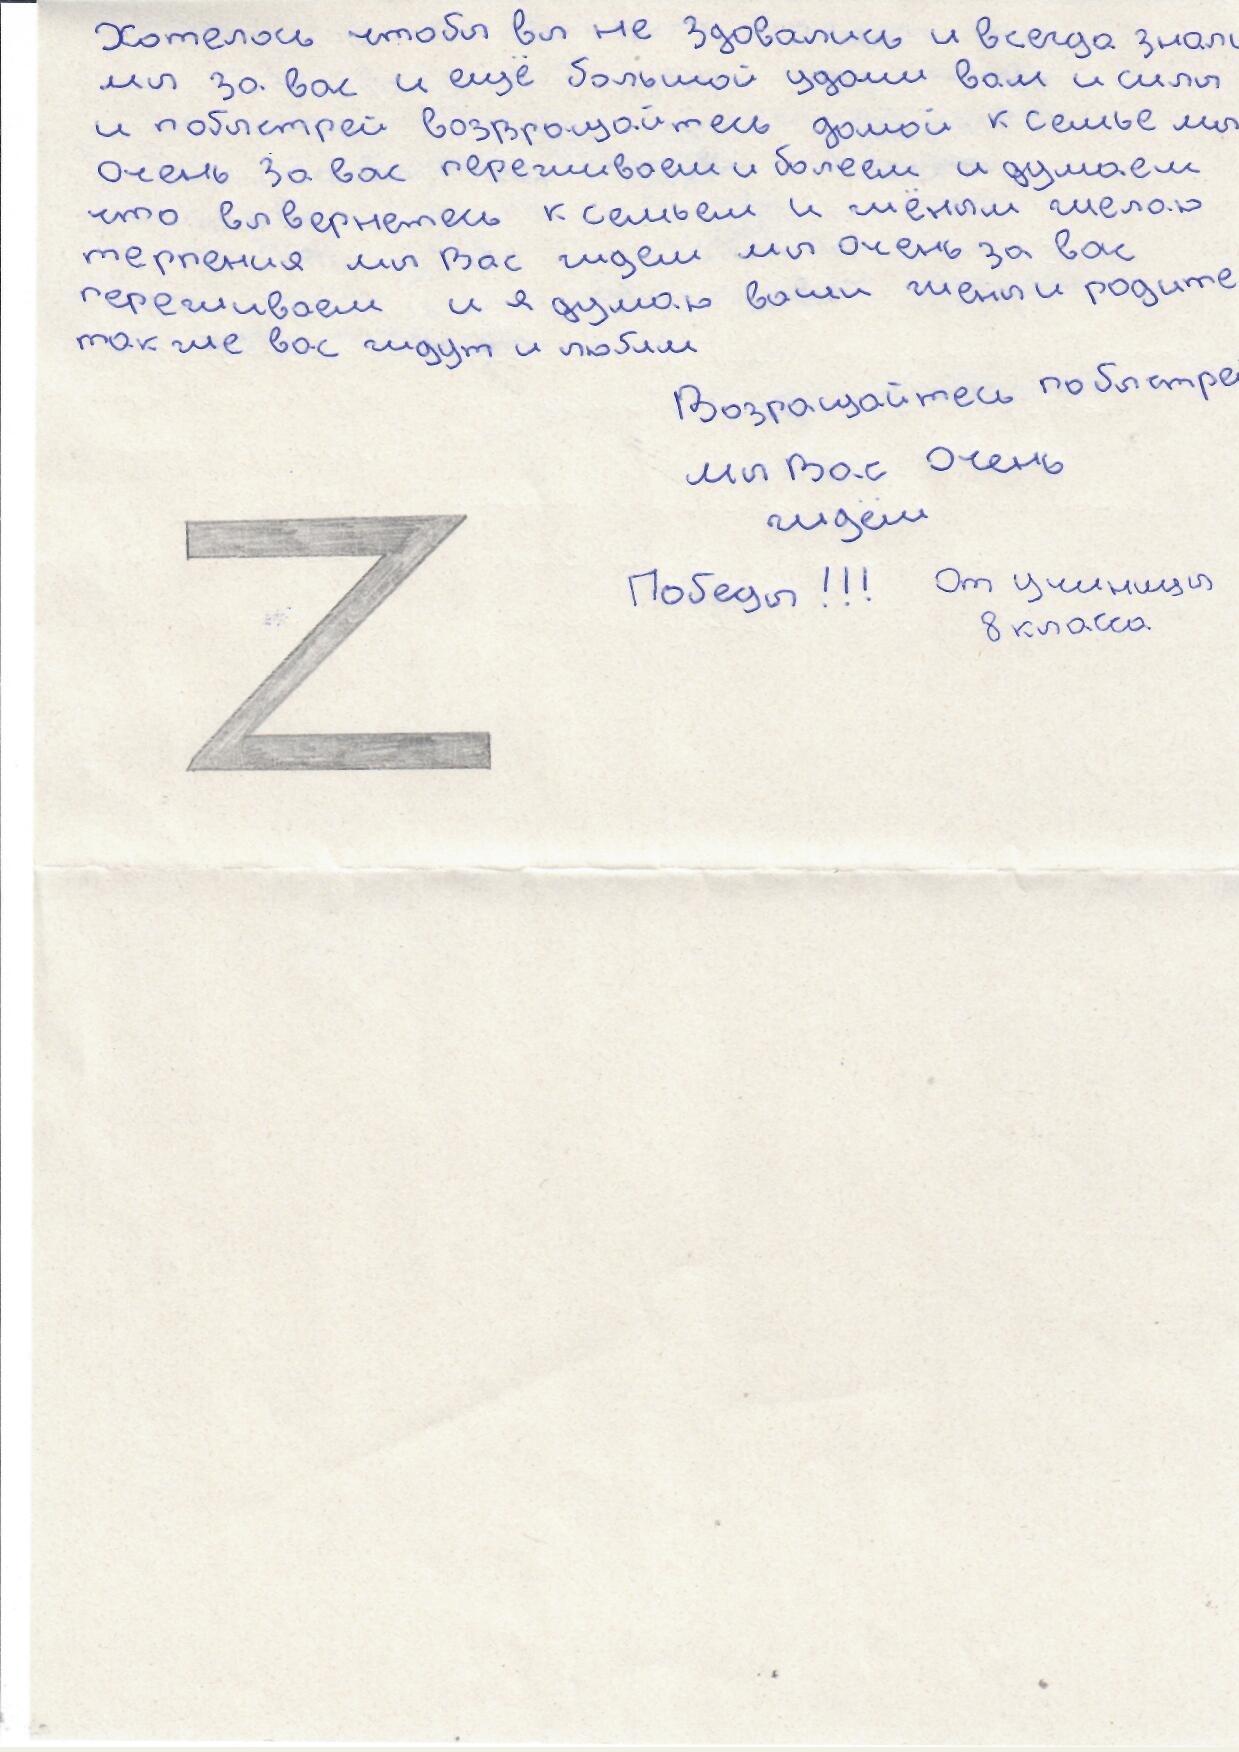 Хотелось чтобы вы не здовались и всегда знали
мы за вас и ещё большой удачи вам и силы
и побыстрей возвращайтесь домой к семье мы
очень за вас переживаем и болеем и думаем
что вы вернетесь к семьем и жёным желаю
терпения мы Вас ждем мы очень за вас
переживаем и я думаю ваши жены и родите
так же вас ждут и любям
Возращайтесь побыстрей
мы Вас Очень
ждём
Победы !!! От учиницы
8 класса
Z